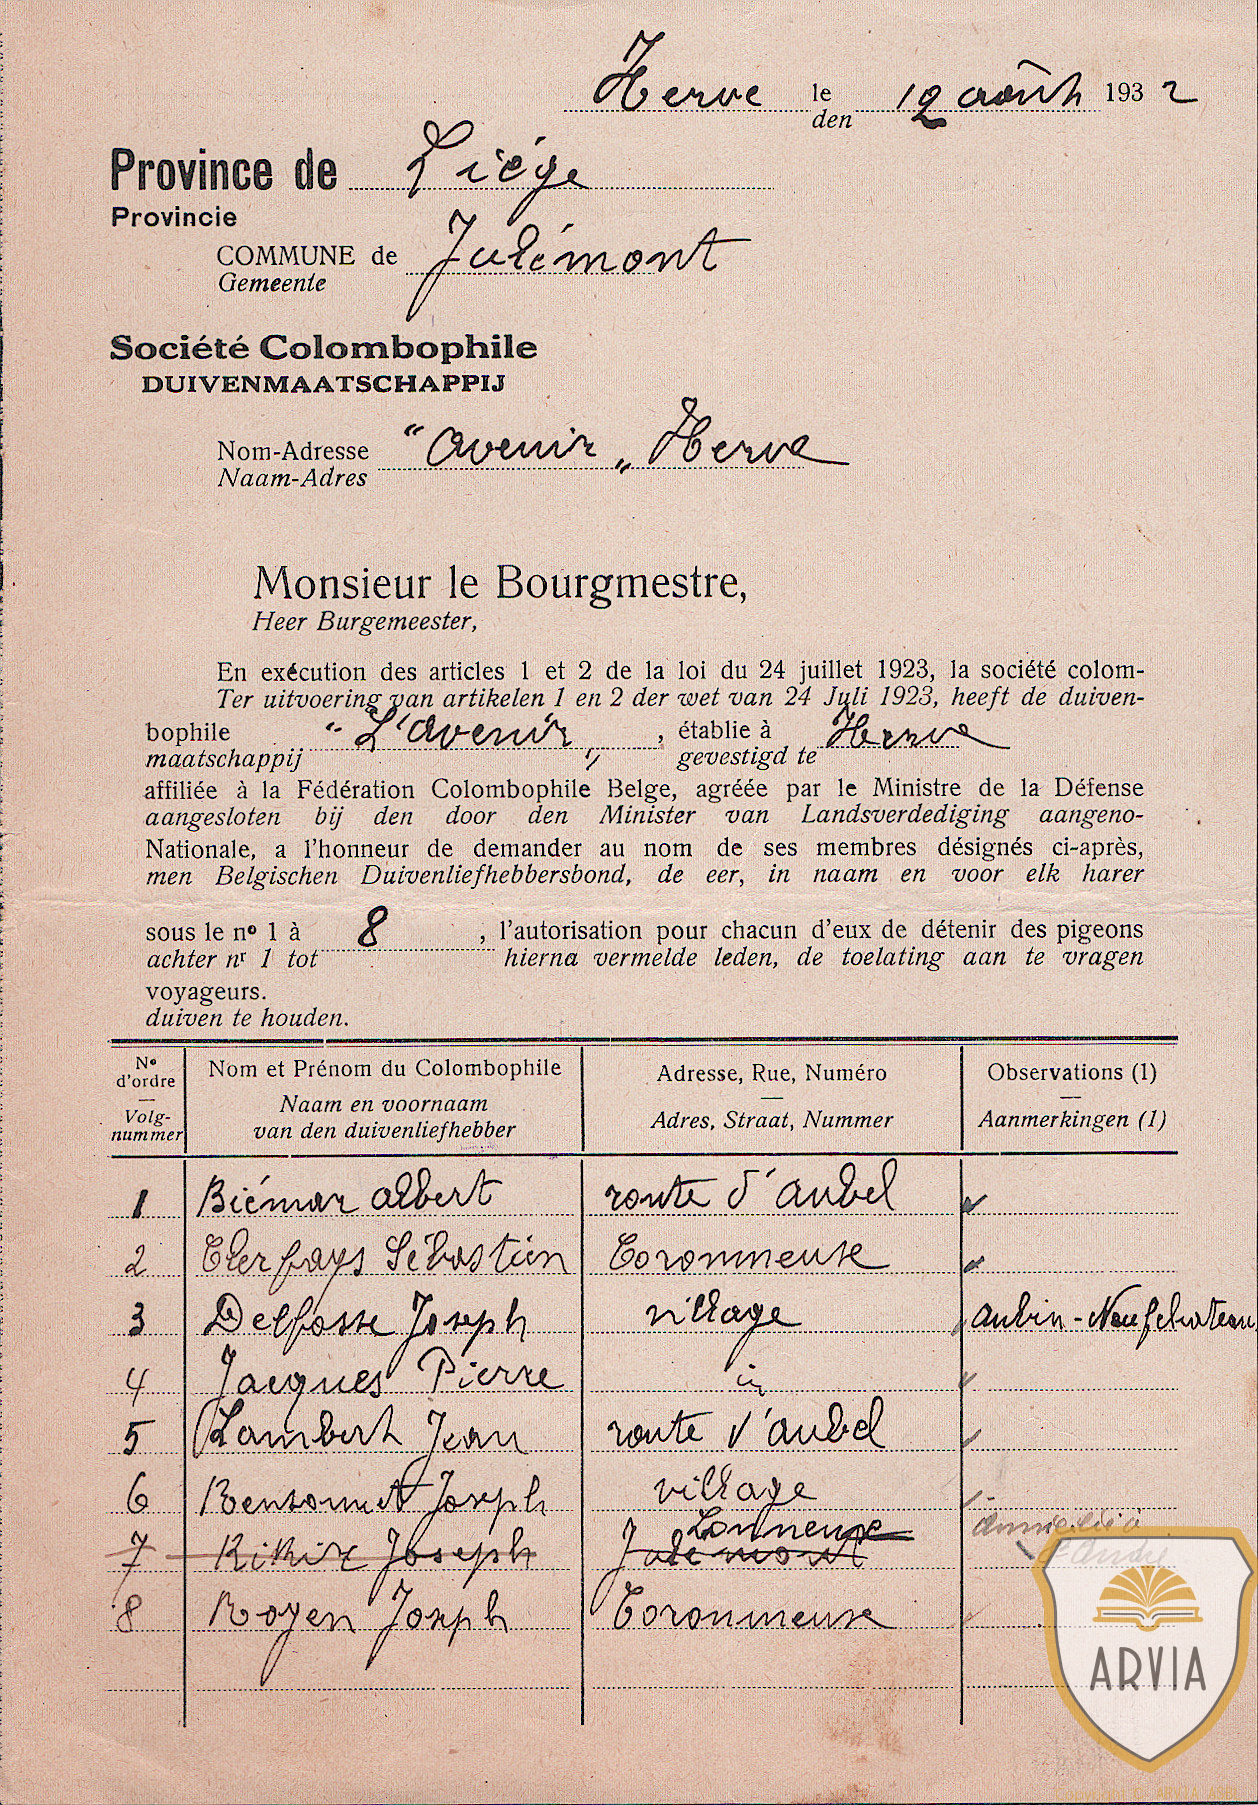 Herve le 12 août 1932
den
Province de Liége
Provincie
COMMUNE de Julémont
Gemeente
Société Colombophile
DUIVENMAATSCHAPPIJ
Nom-Adresse "Avenir" Herve
Naam-Adres
Monsieur le Bourgmestre,
Heer Burgemeester,
En exécution des articles 1 et 2 de la loi du 24 juillet 1923, la société colom-
Ter uitvoering van artikelen 1 en 2 der wet van 24 Juli 1923, heeft de duiven-
bophile "L'Avenir", établie à Herve
maatschappij gevestigd te
affiliée à la Fédération Colombophile Belge, agréée par le Ministre de la Défense
aangesloten bij den door den Minister van Landsverdediging aangeno-
Nationale, a l'honneur de demander au nom de ses membres désignés ci-après,
men Belgischen Duivenliefhebbersbond, de eer, in naam en voor elk harer
sous le nº 1 à 8, l'autorisation pour chacun d'eux de détenir des pigeons
achter nr 1 tot hierna vermelde leden, de toelating aan te vragen
voyageurs.
duiven te houden.
Nº d'ordre Nom et Prénom du Colombophile Adresse, Rue, Numéro Observations (1)
Volg-nummer Naam en voornaam van den duivenliefhebber Adres, Straat, Nummer Aanmerkingen (1)
1 Biémar Albert route d'Aubel
2 Clerfays Sébastien Coronmeuse
3 Delfosse Joseph village Aubin-Neufchateau
4 Jacques Pierre
5 Lambert Jean route d'Aubel
6 Rensonnet Joseph village
7 Joseph Julémont
8 Royen Joseph Coronmeuse
ARVIA